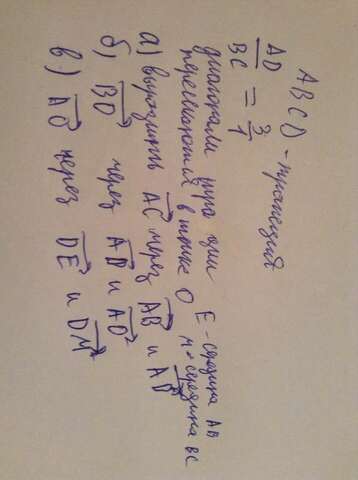 ABCD - трапеция
AD/BC = 3/1
диагонали тра ции
пересекаются в точке O
E - середина AB
M - середина BC
а) выразить AC через AB и AD
б) BO через AD и AO
в) AO через DE и DM